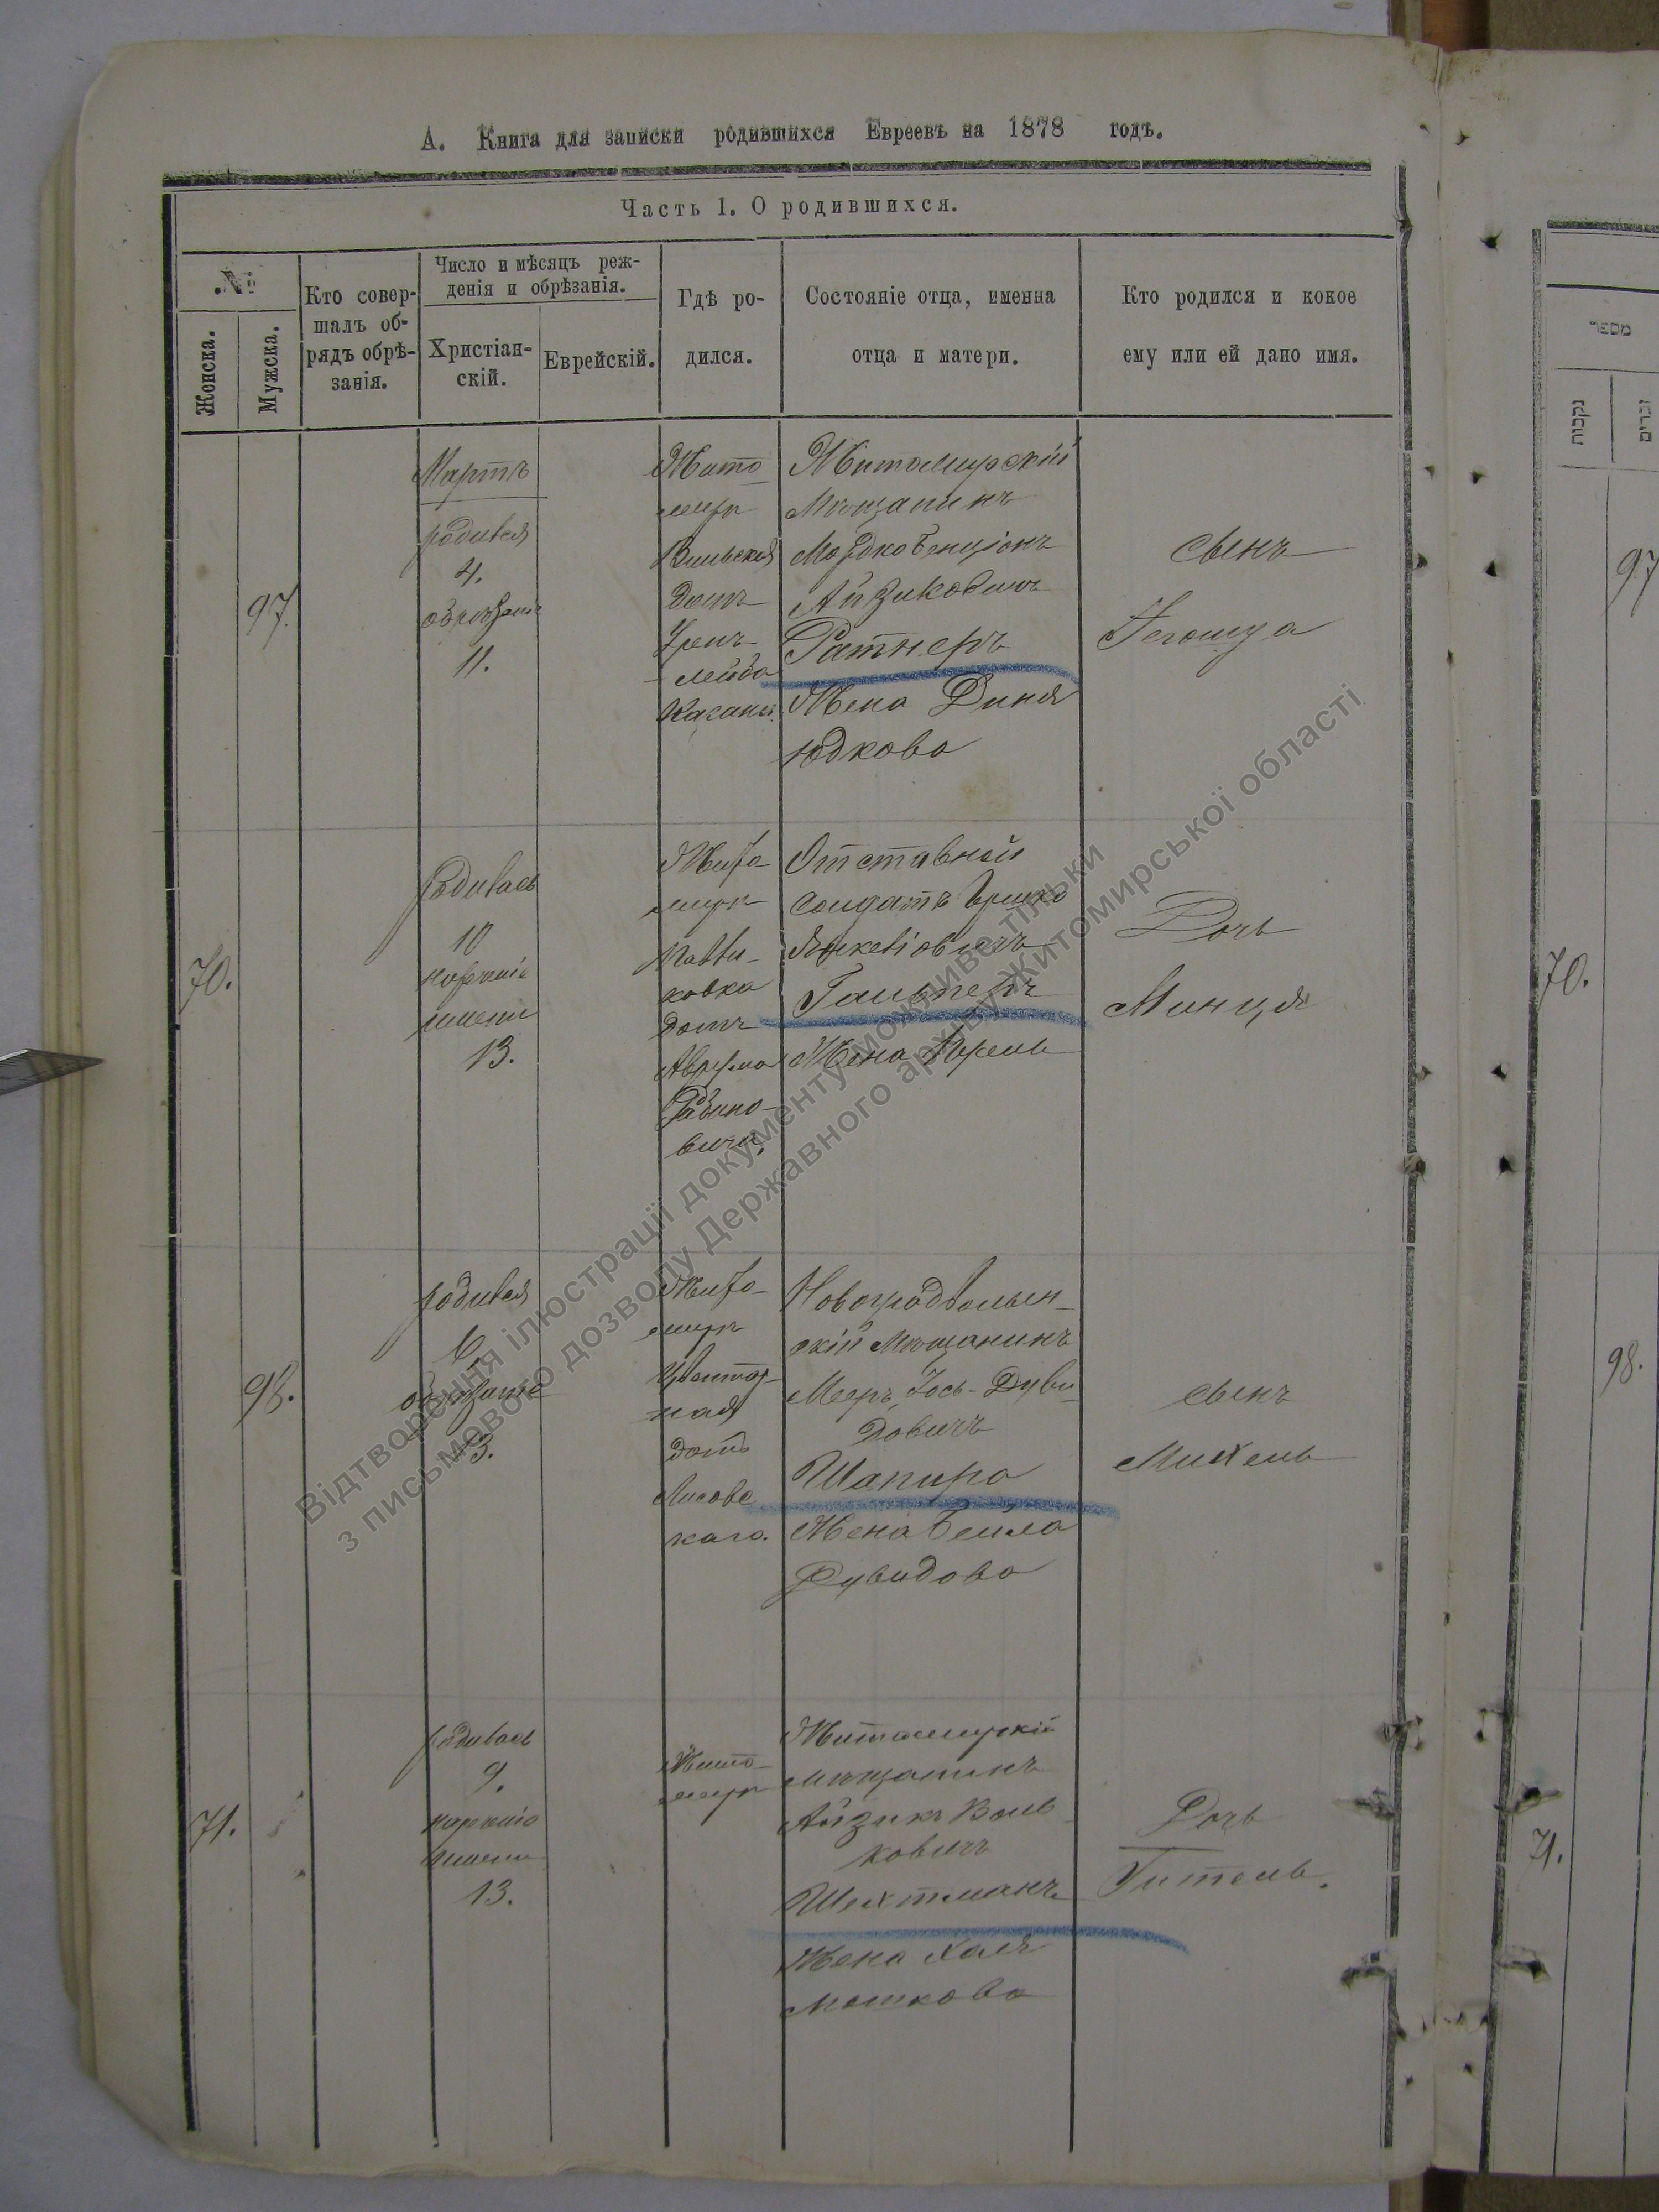 А. Книга для записки родившихся Евреевъ на 1878 годъ.
Часть 1. О родившихся.
№
Женска.
Мужска.
Кто совер-
шалъ об-
рядъ обрѣ-
занія.
Число и мѣсяцъ реж-
денія и обрѣзанія.
Христіан-
скій.
Еврейскій.
Гдѣ ро-
дился.
Состояніе отца, именна
отца и матери.
Кто родился и кокое
ему или ей дано имя.
97.
Мартъ
родился
4.
обрѣзанie
11.
Жито
миръ
Вильская
домъ
лейба
Житомирскій
Мѣщанинъ
Мордко Бенціонъ
Айзиковичъ
Ратнеръ
Жена Диня
Юдкова
сынъ
Іегошуа
70.
родилась
10
имени
13.
Жито
миръ
ковка
домъ
Аврума
Рабино-
вича.
Отставной
солдатъ Гершко
Гальперъ
Жена Перель
Дочь
Минця
98.
родился
6
обрѣзание
13.
Жито-
миръ
ная
домъ
Лисовс
каго.
Новоградволын-
скій Мѣщанинъ
Мееръ, Іось-Дуви
довичъ
Шапиро
Жена Бейла
Дувидова
сынъ
Михель
71.
родилась
9.
имени
13.
Жито-
миръ
Житомирскій
мѣщанинъ
Айзикъ Воль
ковичъ
Шехтманъ
Жена Хая
Мошкова
Дочь
Гитель.
מספר
נקבות
זכרים
97
70.
98.
71.
Відтворення ілюстрації документу можливе тільки
з письмового дозволу Державного архіву Житомирської області